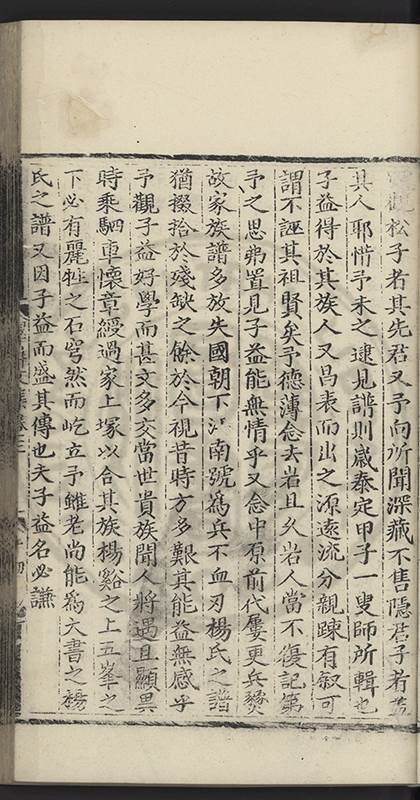 觀松子者其先君又予向所聞深藏不售隱君子者蓋
其人耶惜予未之逮見譜則歲泰定甲子一叟師所輯也
子益得於其族人又昌表而出之源遠流分親踈有叙可
謂不誣其祖賢矣予德薄念去岩且久岩人當不復記第
予之思弗置見子益能無情乎又念中原前代屢更兵燹
故家族譜多放失國朝下江南號爲兵不血刃楊氏之譜
猶掇拾於殘缺之餘於今視昔時方多艱其能益無感乎
予觀子益好學而甚文多交當世貴族聞人將遇且顯異
時乘駟車懷章綬過家上塚以合其族楊谿之上五峯之
下必有麗牲之石穹然而屹立予雖老尚能爲大書之楊
氏之譜又因子益而盛其傳也夫子益名必謙